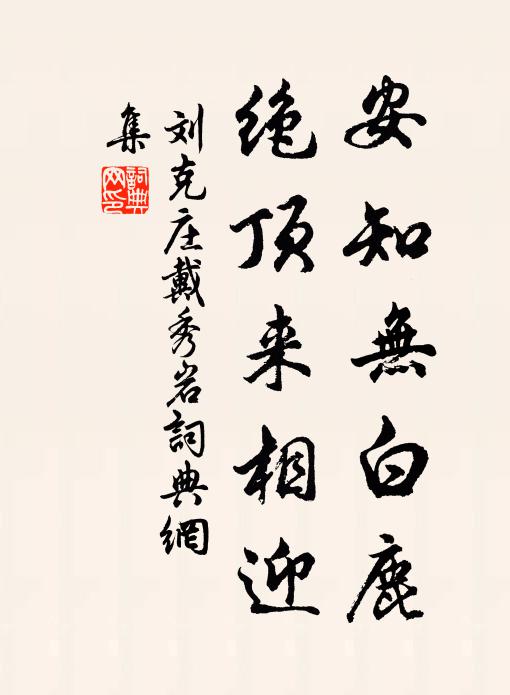 安知無白鹿
绝顶来相迎
刘克庄戴秀岩詞典網
集
詞典网印